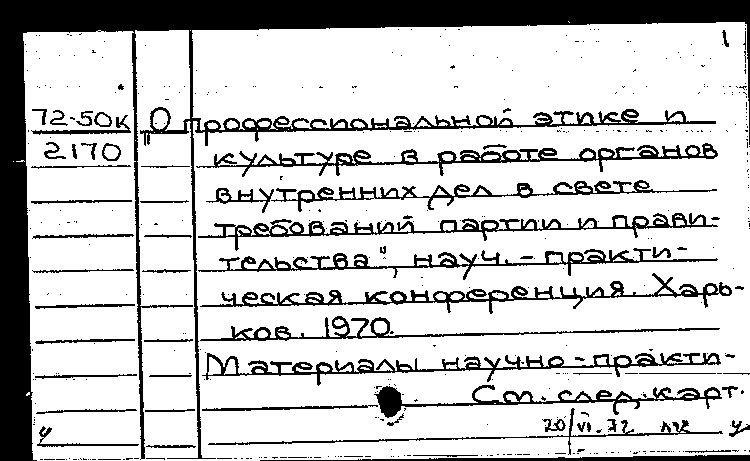 1
72-50к "О профессиональной этике и
2170 культуре в работе органов
внутренних дел в свете
требований партии и прави-
тельства", науч.-практи-
ческая конференция. Харь-
ков. 1970.
Материалы научно-практи-
См. след. карт.
20/VI-72